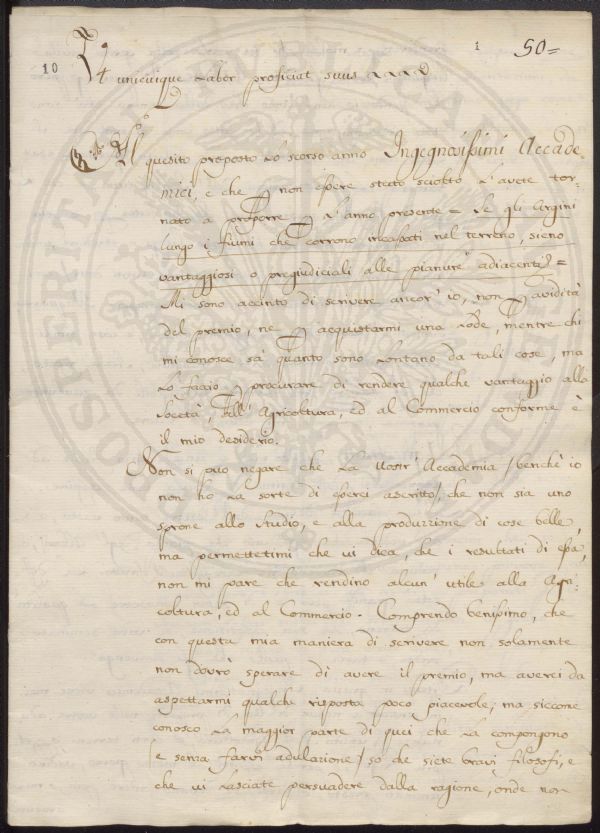 10
1
50=
Ut unicuique Labor proficiat suus
Al quesito proposto lo scorso anno Ingegnosissimi Accade-
mici, e che per non essere stato sciolto l'avete tor-
nato a proporre per l'anno presente = Se gli Argini
lungo i fiumi che corrono incassati nel terreno, sieno
vantaggiosi o pregiudiciali alle pianure adiacenti? =
Mi sono accinto di scrivere ancor' io, non per avidità
del premio, ne per acquistarmi una lode, mentre chi
mi conosce sà quanto sono lontano da tali cose, ma
lo faccio per procurare di rendere qualche vantaggio alla
Società, all' Agricoltura, ed al Commercio conforme è
il mio desiderio.
Non si puo negare che la vostr' Accademia / benchè io
non ho la sorte di esserci ascritto /, che non sia uno
sprone allo studio, e alla produzzione di cose belle,
ma permettetimi che vi dica, che i resultati di essa,
non mi pare che rendino alcun' utile alla Agri-
coltura, ed al Commercio. Comprendo benissimo, che
con questa mia maniera di scrivere non solamente
non dovrò sperare di avere il premio, ma averei da
aspettarmi qualche risposta poco piacevole; ma siccome
conosco la maggior parte di quei che la compongono
/ e senza farvi adulazione / so che siete bravi filosofi, e
che vi lasciate persuadere dalla ragione, onde non